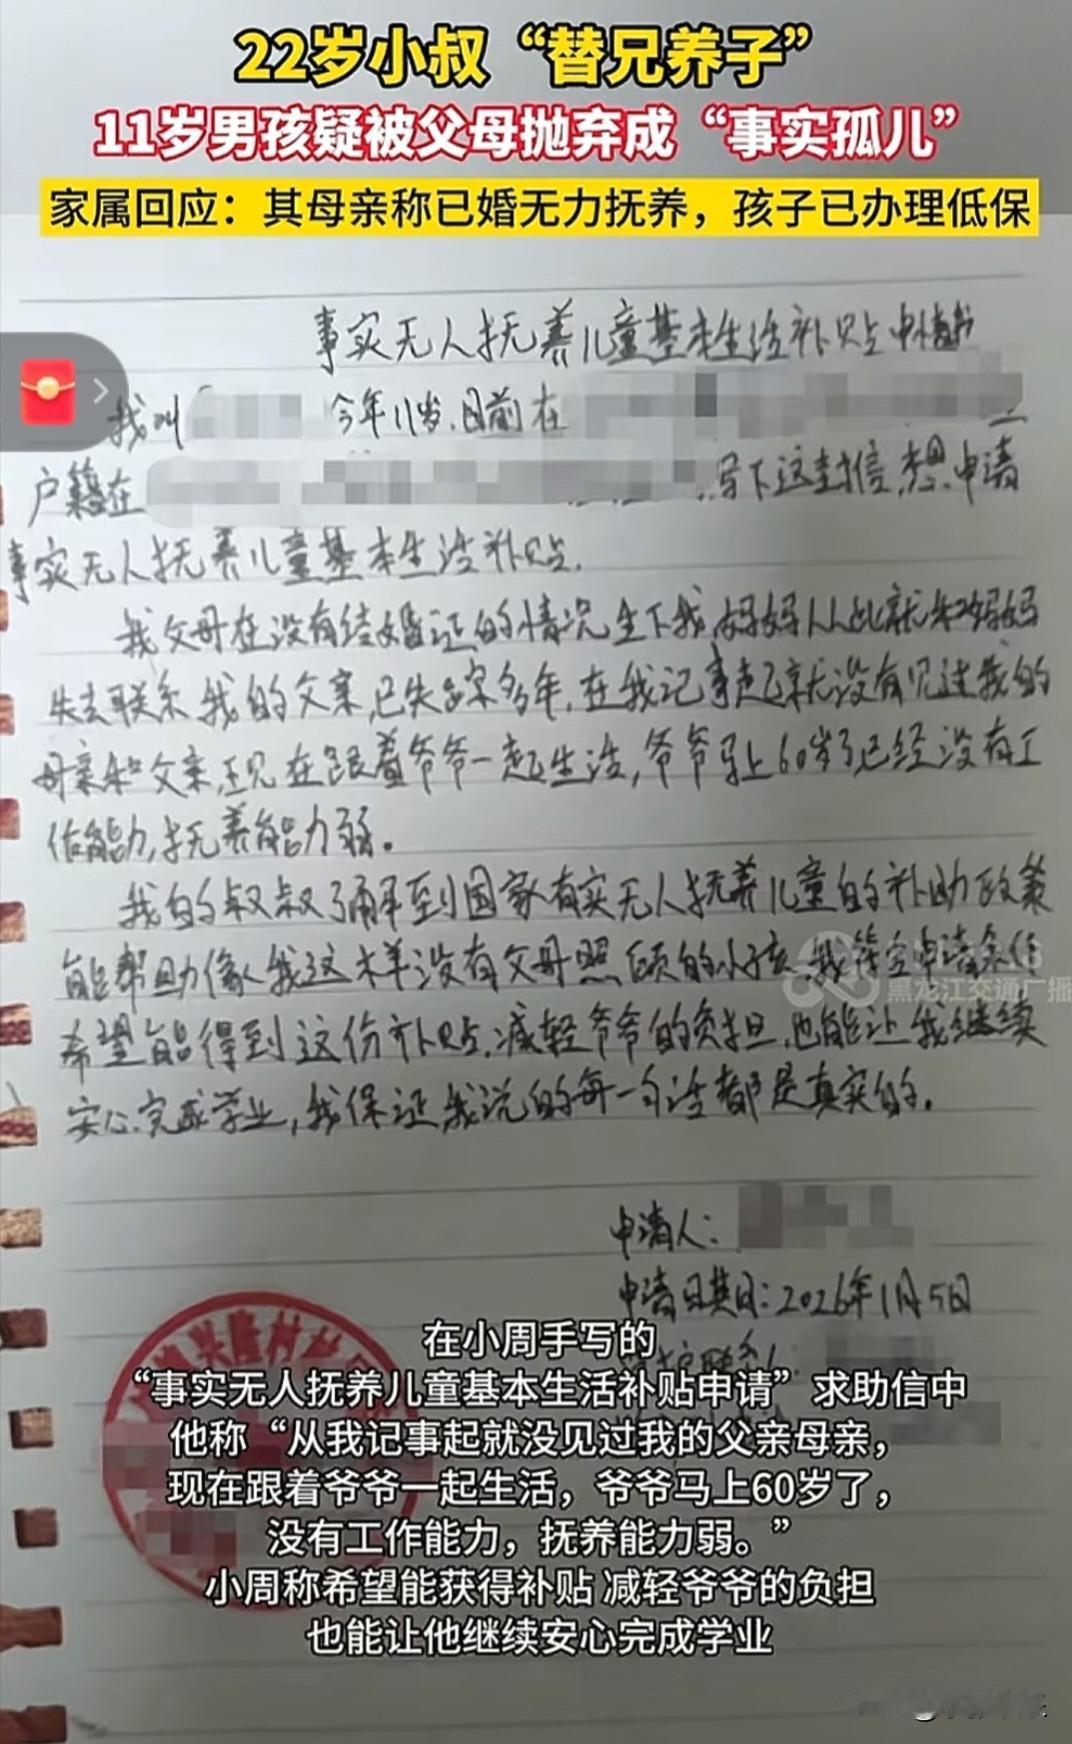 22岁小叔“替兄养子”
11岁男孩疑被父母抛弃成“事实孤儿”
家属回应：其母亲称已婚无力抚养，孩子已办理低保
事实无人抚养儿童基本生活补贴申请书
我叫 今年11岁，目前在
户籍在 写下这封信，想申请
事实无人抚养儿童基本生活补贴。
我父母在没有结婚证的情况生下我，妈妈从此就和妈妈
失去联系，我的父亲，已失踪多年，在我记事起就没有见过我的
母亲和父亲，现在跟着爷爷一起生活，爷爷马上60岁了已经没有工
作能力，抚养能力弱。
我的叔叔了解到国家有实无人抚养儿童的补助政策
能帮助像我这样没有父母照顾的小孩，我符合申请条件
希望能得到这份补贴，减轻爷爷的负担，也能让我继续
安心完成学业，我保证我说的每一句话都是真实的。
黑龙江交通广播
申请人：
申请日期：2026年1月5日
兴隆村村
在小周手写的
“事实无人抚养儿童基本生活补贴申请”求助信中
他称“从我记事起就没见过我的父亲母亲，
现在跟着爷爷一起生活，爷爷马上60岁了，
没有工作能力，抚养能力弱。”
小周称希望能获得补贴 减轻爷爷的负担
也能让他继续安心完成学业